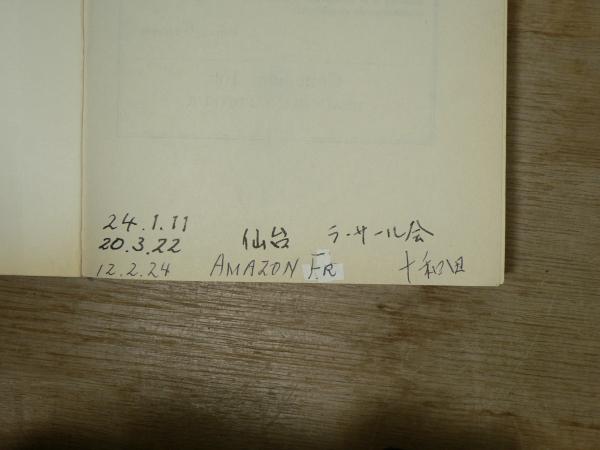 24.1.11
20.3.22 仙台 ラ・サール会
12.2.24 AMAZON F.R 十和田